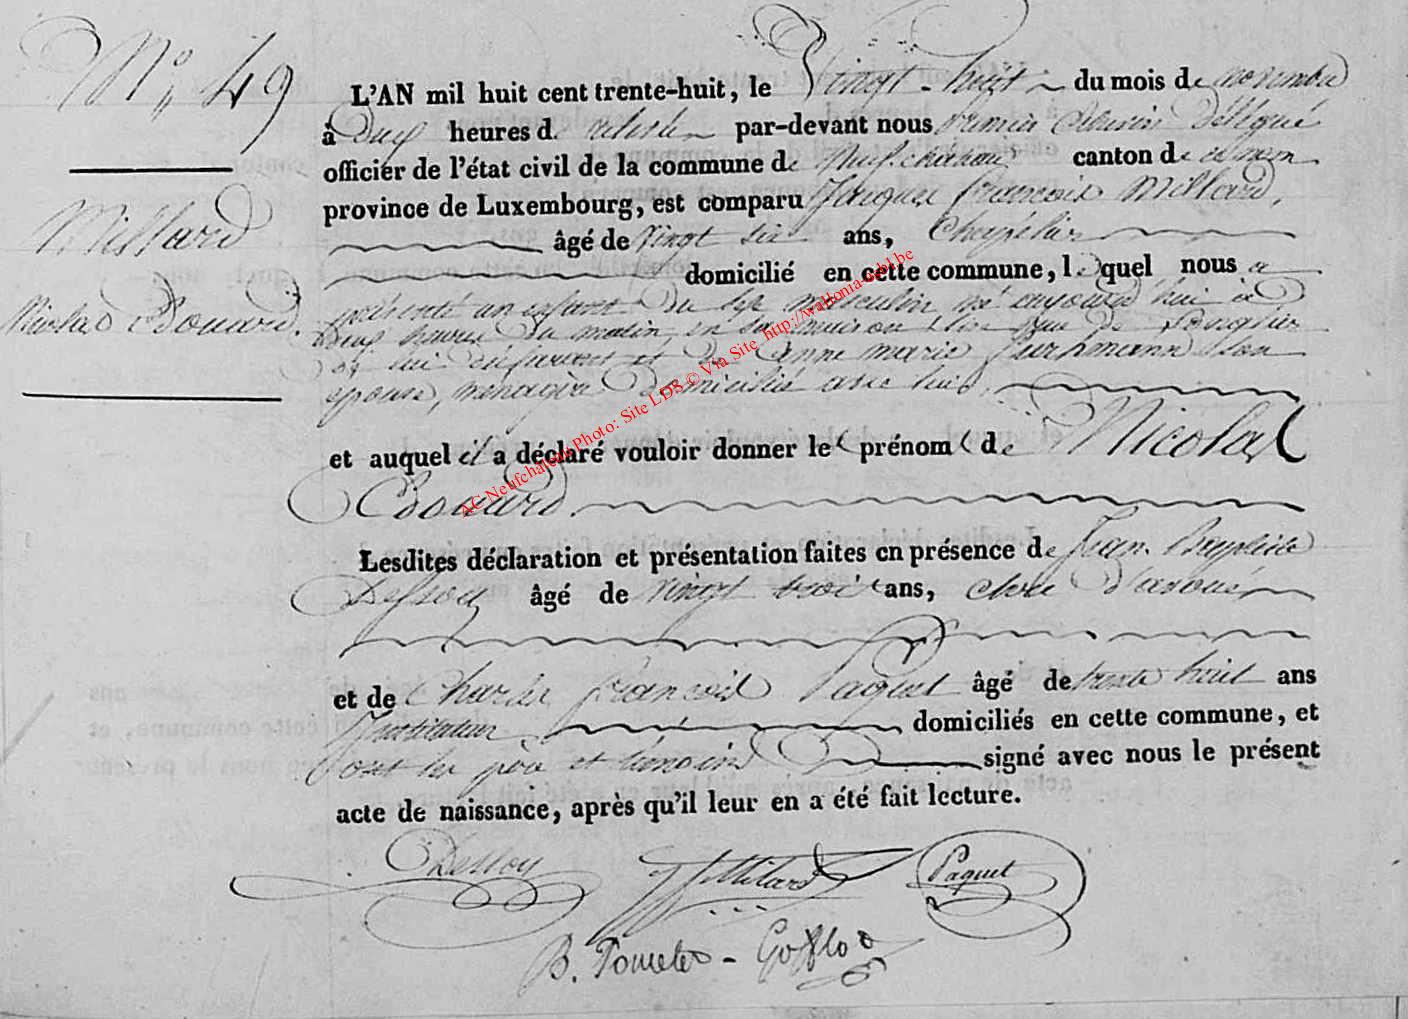 N° 49
Millard
Nicolas Edouard.
L'AN mil huit cent trente-huit, le vingt-huit du mois de novembre
à Dix heures d. par-devant nous premier Echevin délégué
officier de l'état civil de la commune de Neufchateau canton de ce nom
province de Luxembourg, est comparu Jacques françois Millard,
âgé de vingt six ans, Chapelier
domicilié en cette commune, lequel nous a
présenté un enfant du sexe masculin né aujourd'hui à
Deux heures du matin, en sa maison sise rue de
de lui déclarant et de Anne marie son
épouse, ménagère Domiciliée avec lui,
et auquel il a déclaré vouloir donner les prénoms de Nicolas
Edouard.
Lesdites déclaration et présentation faites en présence de Jean Baptiste
Dessoy âgé de vingt trois ans, clerc d'avoué
et de Charles françois Paquet âgé de trente huit ans
Instituteur domiciliés en cette commune, et
ont les père et témoins signé avec nous le présent
acte de naissance, après qu'il leur en a été fait lecture.
Dessoy Millard Paquet
B. Goffloo
AC Neufchateau Photo: Site LDS © Via Site http://wallonia-asbl.be